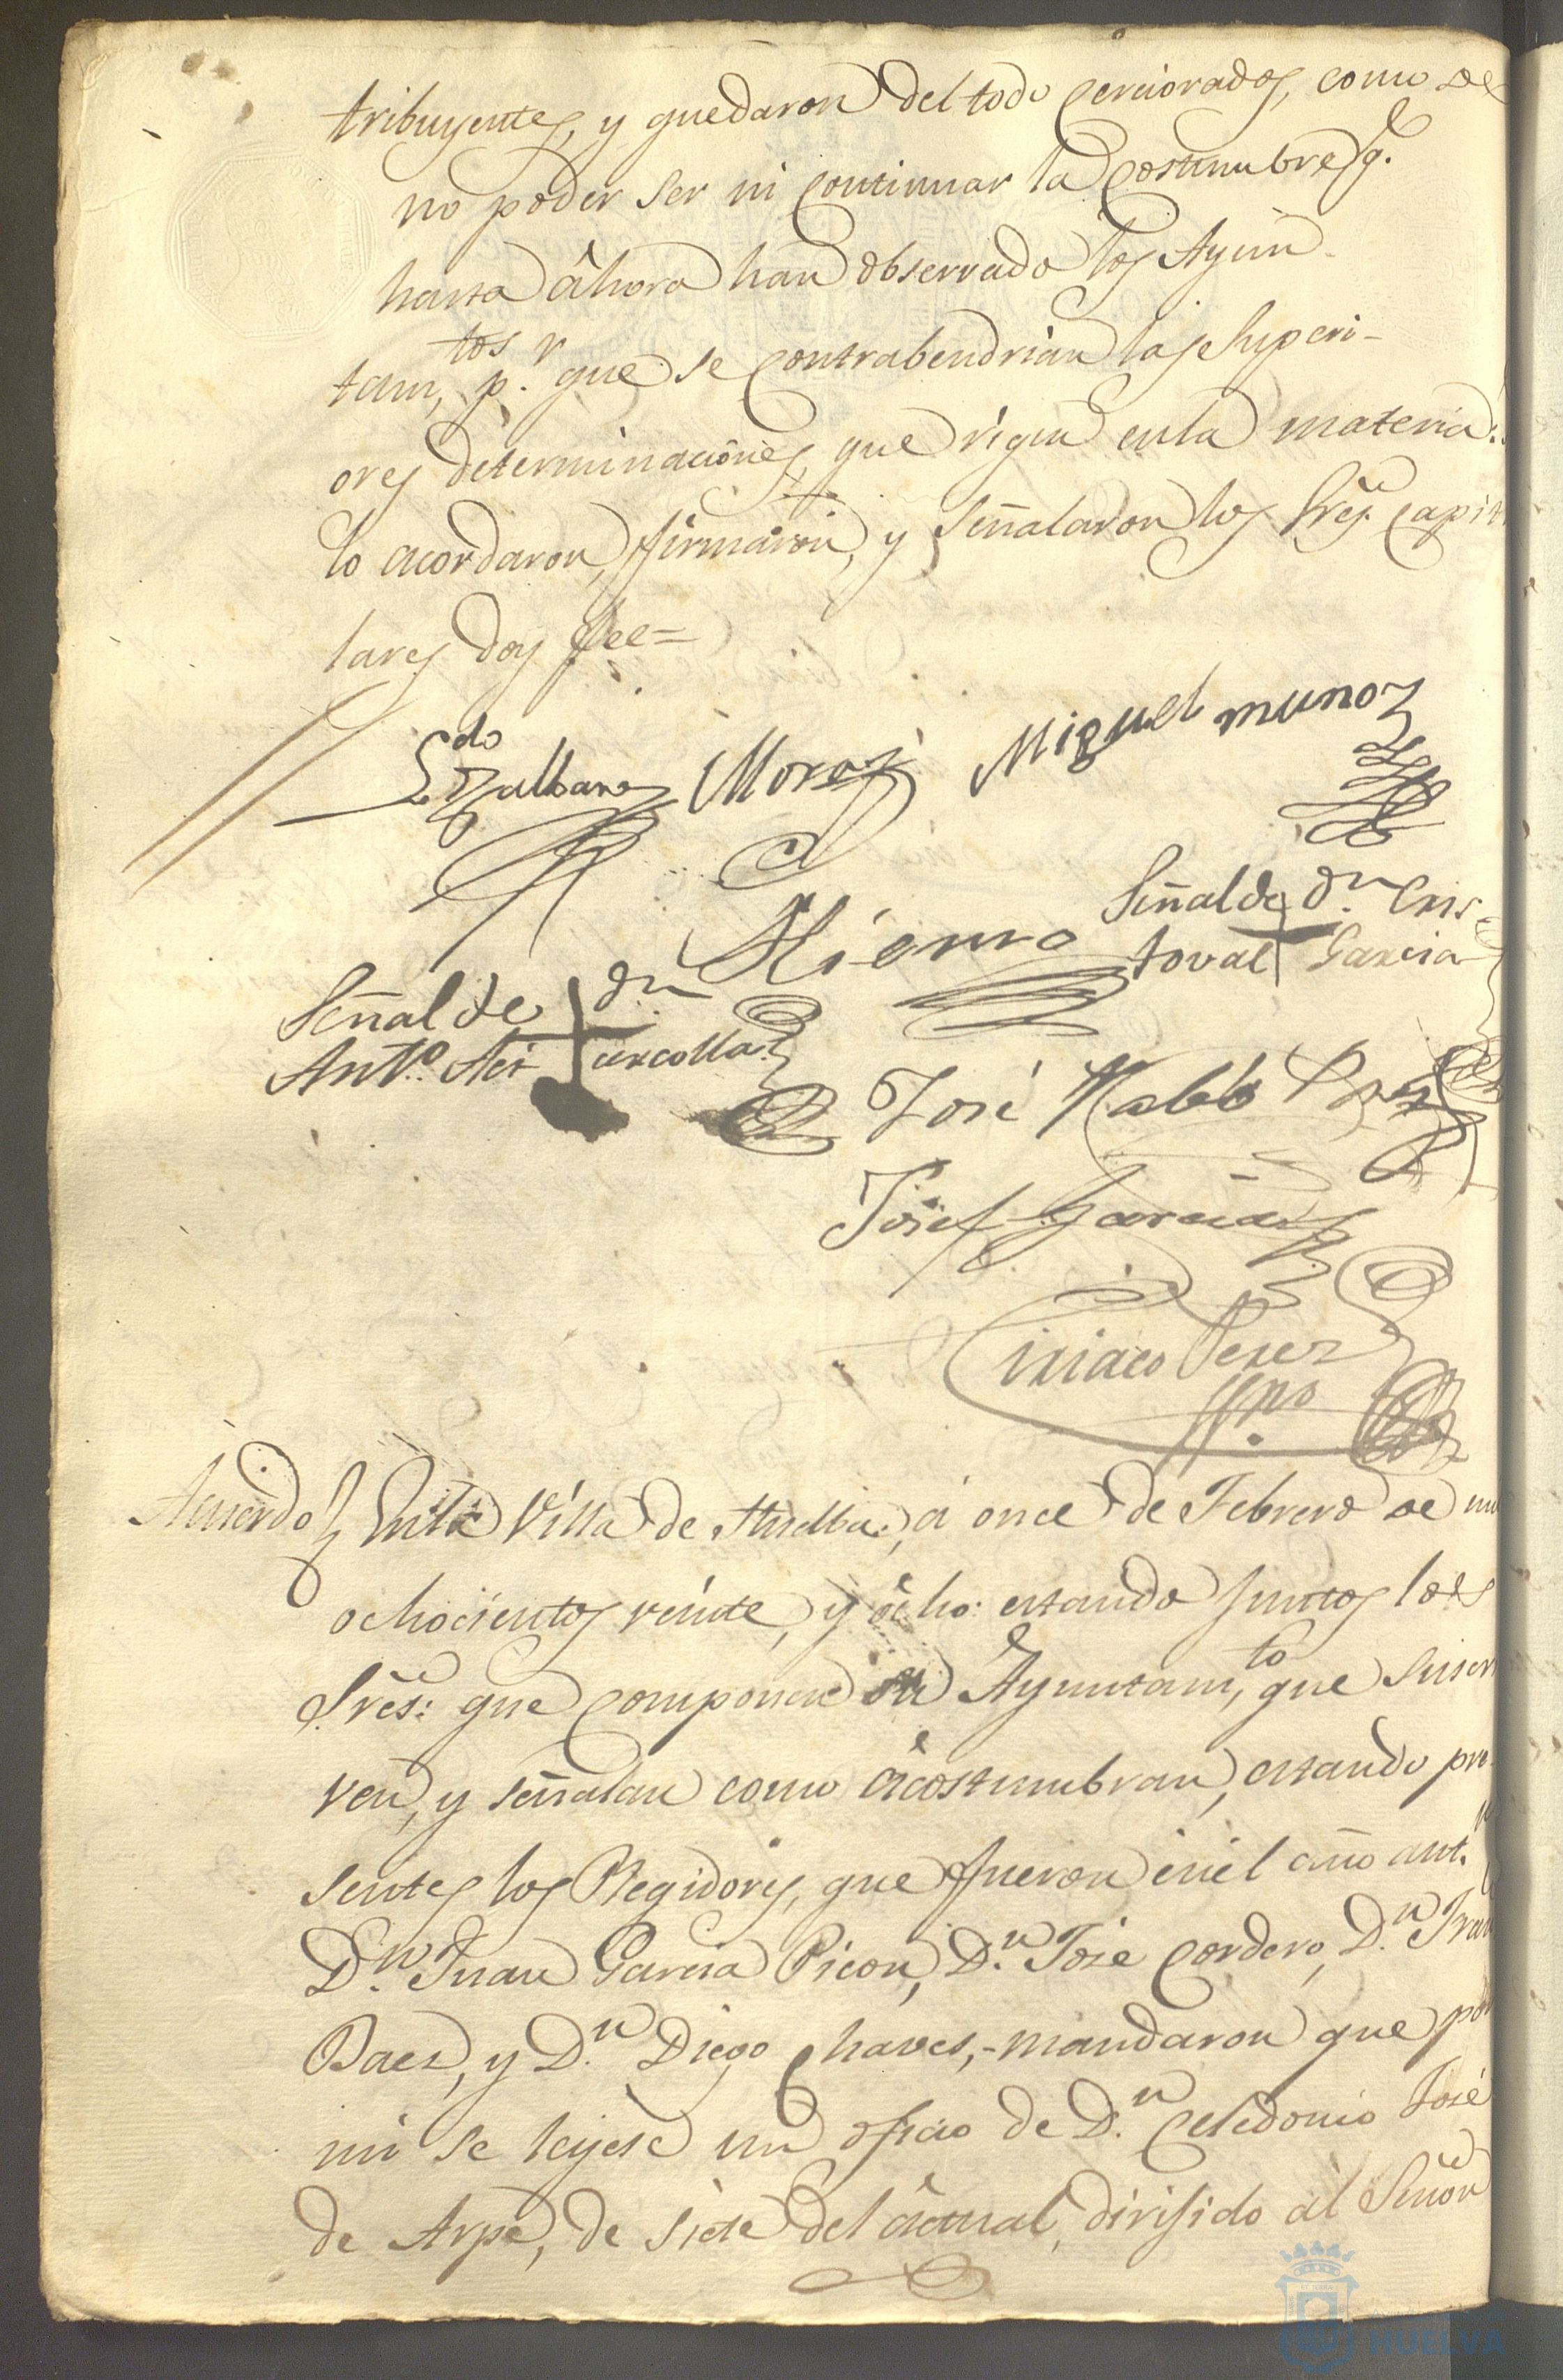 tribuyentes, y quedaron del todo cerciorados, como de
no poder ser ni continuar la costumbre q.e
hasta áhora han observado los Ayun-
tam,tos p.r que se contrabendrian las superi-
ores determinaciônes, que rigen en la materia:
lo acordaron, firmaron, y señalaron los Sres. capitu
lares doy fee=
Ldo Zalbane Mora Miguel munoz
Hierro Señal de + dn Cris-
toval Garcia
Señal de + dn
Anto. Aci
José Perez
Josef Garcia
Ciriaco Perez
Acuerdo En la Villa de Huelba, á once de Febrero de mil
ochocientos veinte, y ôcho: estando juntos los
Sres: que componen su Ayuntam,to que suscri
ven, y señalan como âcostumbran, estando pre-
sentes los Regidores, que fueron en el año ant.r
D.n Juan Garcia Picon, D.n José Cordero, D.n Fran
Baez, y D.n Diego Chaves,- mandaron que por
mi se leyese un oficio de D.n Celedonio José
de Arpe, de siete del âctual, dirijido al Señor
HUELVA